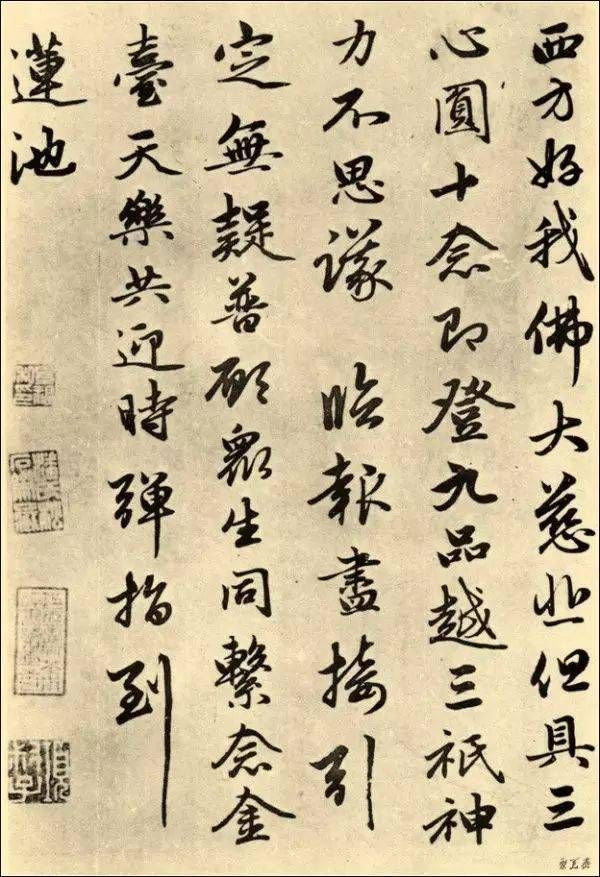 西方好我佛大慈悲但具三
心圓十念即登九品越三祇神
力不思議 臨報盡接引
定無疑普願眾生同繫念金
臺天樂共迎時彈指到
蓮池